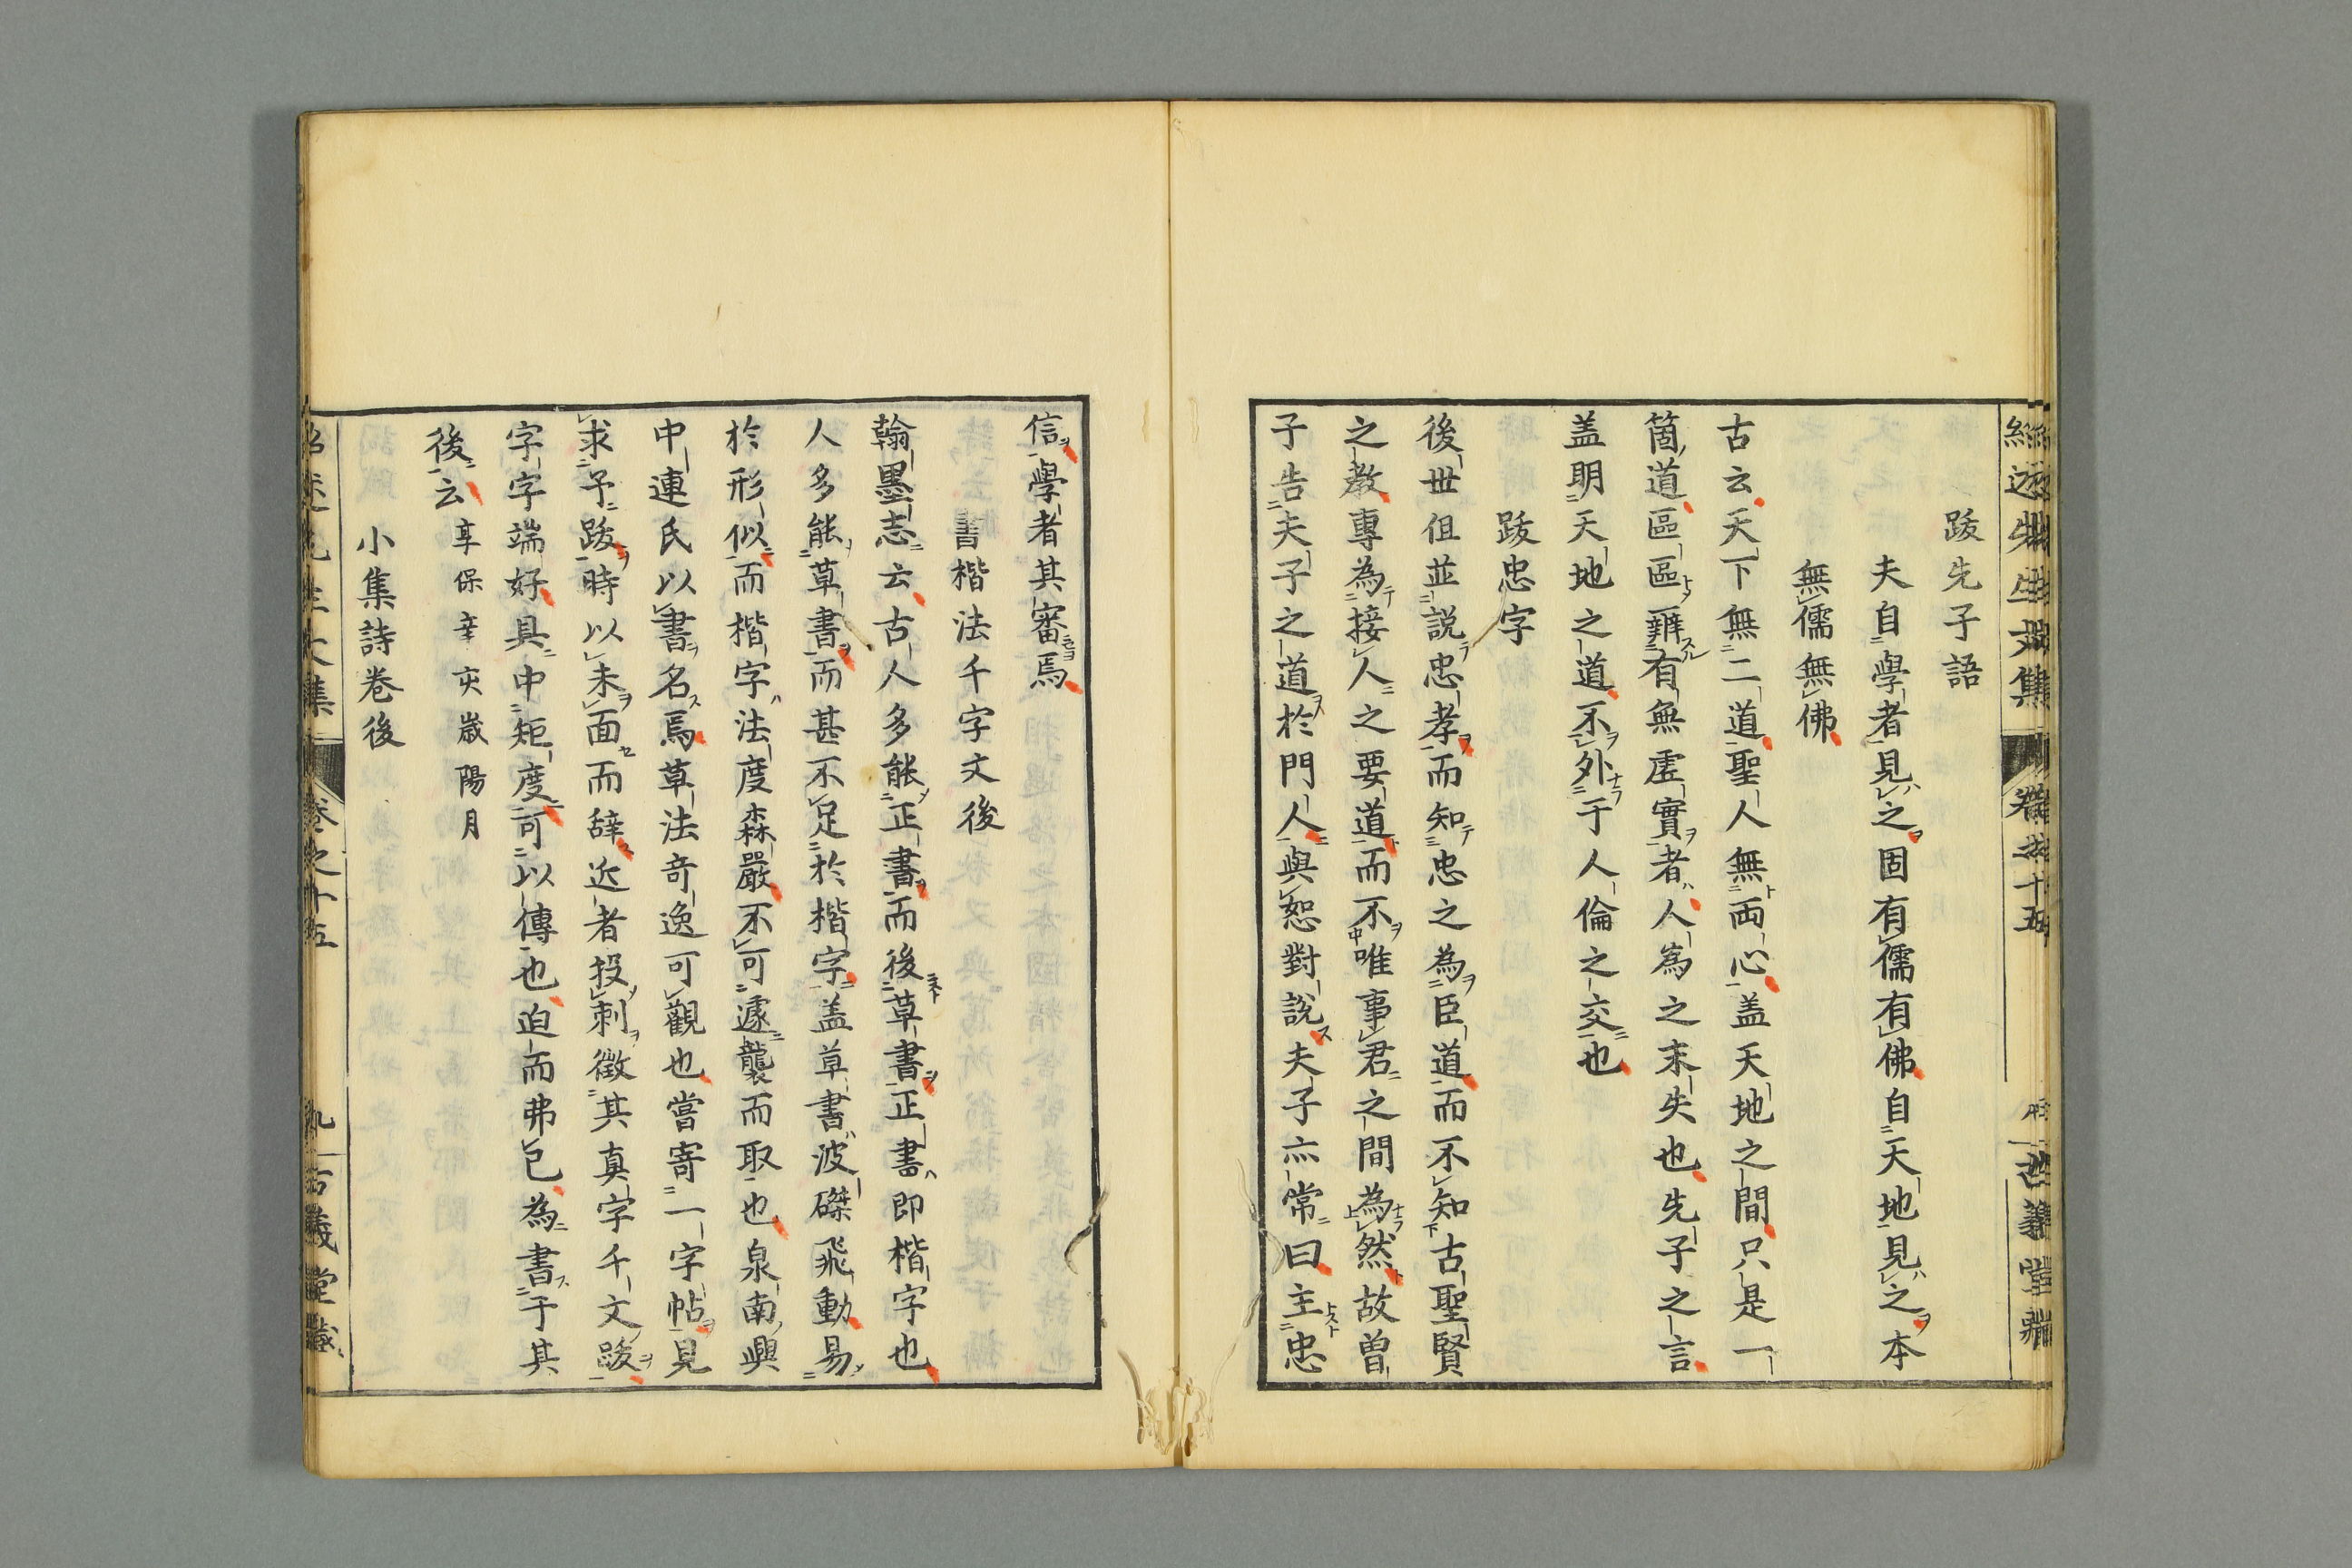 跋先子語
夫自學者見之固有儒有佛自天地見之本
無儒無佛
古云天下無二道聖人無両心盖天地之間只是一
箇道區區辨有無虚實者人為之末失也先子之言
盖明天地之道不外于人倫之交也
跋忠字
後世但並説忠孝而知忠之為臣道而不知古聖賢
之教專為接人之要道而不唯事君之間為然故曽
子告夫子之道於門人與恕對說夫子亦常曰主忠
信學者其審焉
書楷法千字文後
翰墨志云古人多能正書而後草書正書即楷字也
人多能草書而甚不足於楷字盖草書波磔飛動易
於形似而楷字法度森嚴不可遽襲而取也泉南興
中連氏以書名焉草法竒逸可觀也嘗寄一字帖見
求予跋時以未面而辞近者投刺徴其真字千文跋
字字端好具中矩度可以傳也迫而弗已為書于其
後云 享保辛亥嵗陽月
小集詩巻後
紹述先生文集 卷之十五 九 古義堂藏